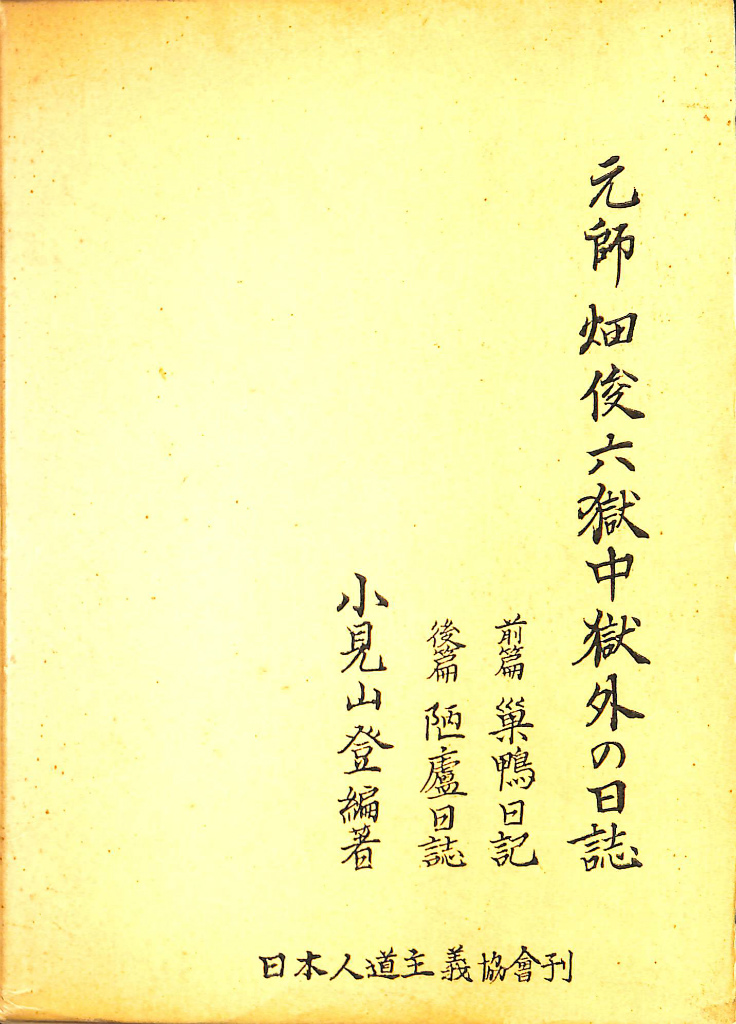 元帥畑俊六獄中獄外の日誌
前篇 巣鴨日記
後篇 陋廬日誌
小見山登編著
日本人道主義協會刊